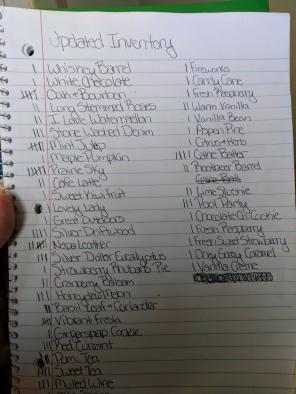 Updated Inventory
I Whiskey Barrel
I White Chocolate
Oak + Bourbon
II Long Stemmed Roses
II I Love Watermelon
III Stone Washed Denim
Mint Julep
I Maple Pumpkin
Prairie Sky
II Cafe Latte
I Sweet Kiwifruit
I Lovely Lady
I Great Outdoors
IIII Silver Driftwood
Napa Leather
III Silver Dollar Eucalyptus
I Strawberry Rhubarb Pie
Cranberry Balsam
III Honeydew Melon
II Basil Leaf + Coriander
Vibrant Fresia
I Gingersnap Cookie
III Red Currant
Tea
III Sweet Tea
III Mulled Wine
I Fireworks
I Candy Cane
I Fresh Raspberry
II Warm Vanilla
I Vanilla Bean
I Aspen Pine
I Citrus + Herb
IIII Cake Batter
II Bourbon Barrel
II Lime Slushie
III Pool Party
I Chocolate Cookie
I Fresh Raspberry
I Fresh Sweet Strawberry
I Caramel
I Vanilla Creme